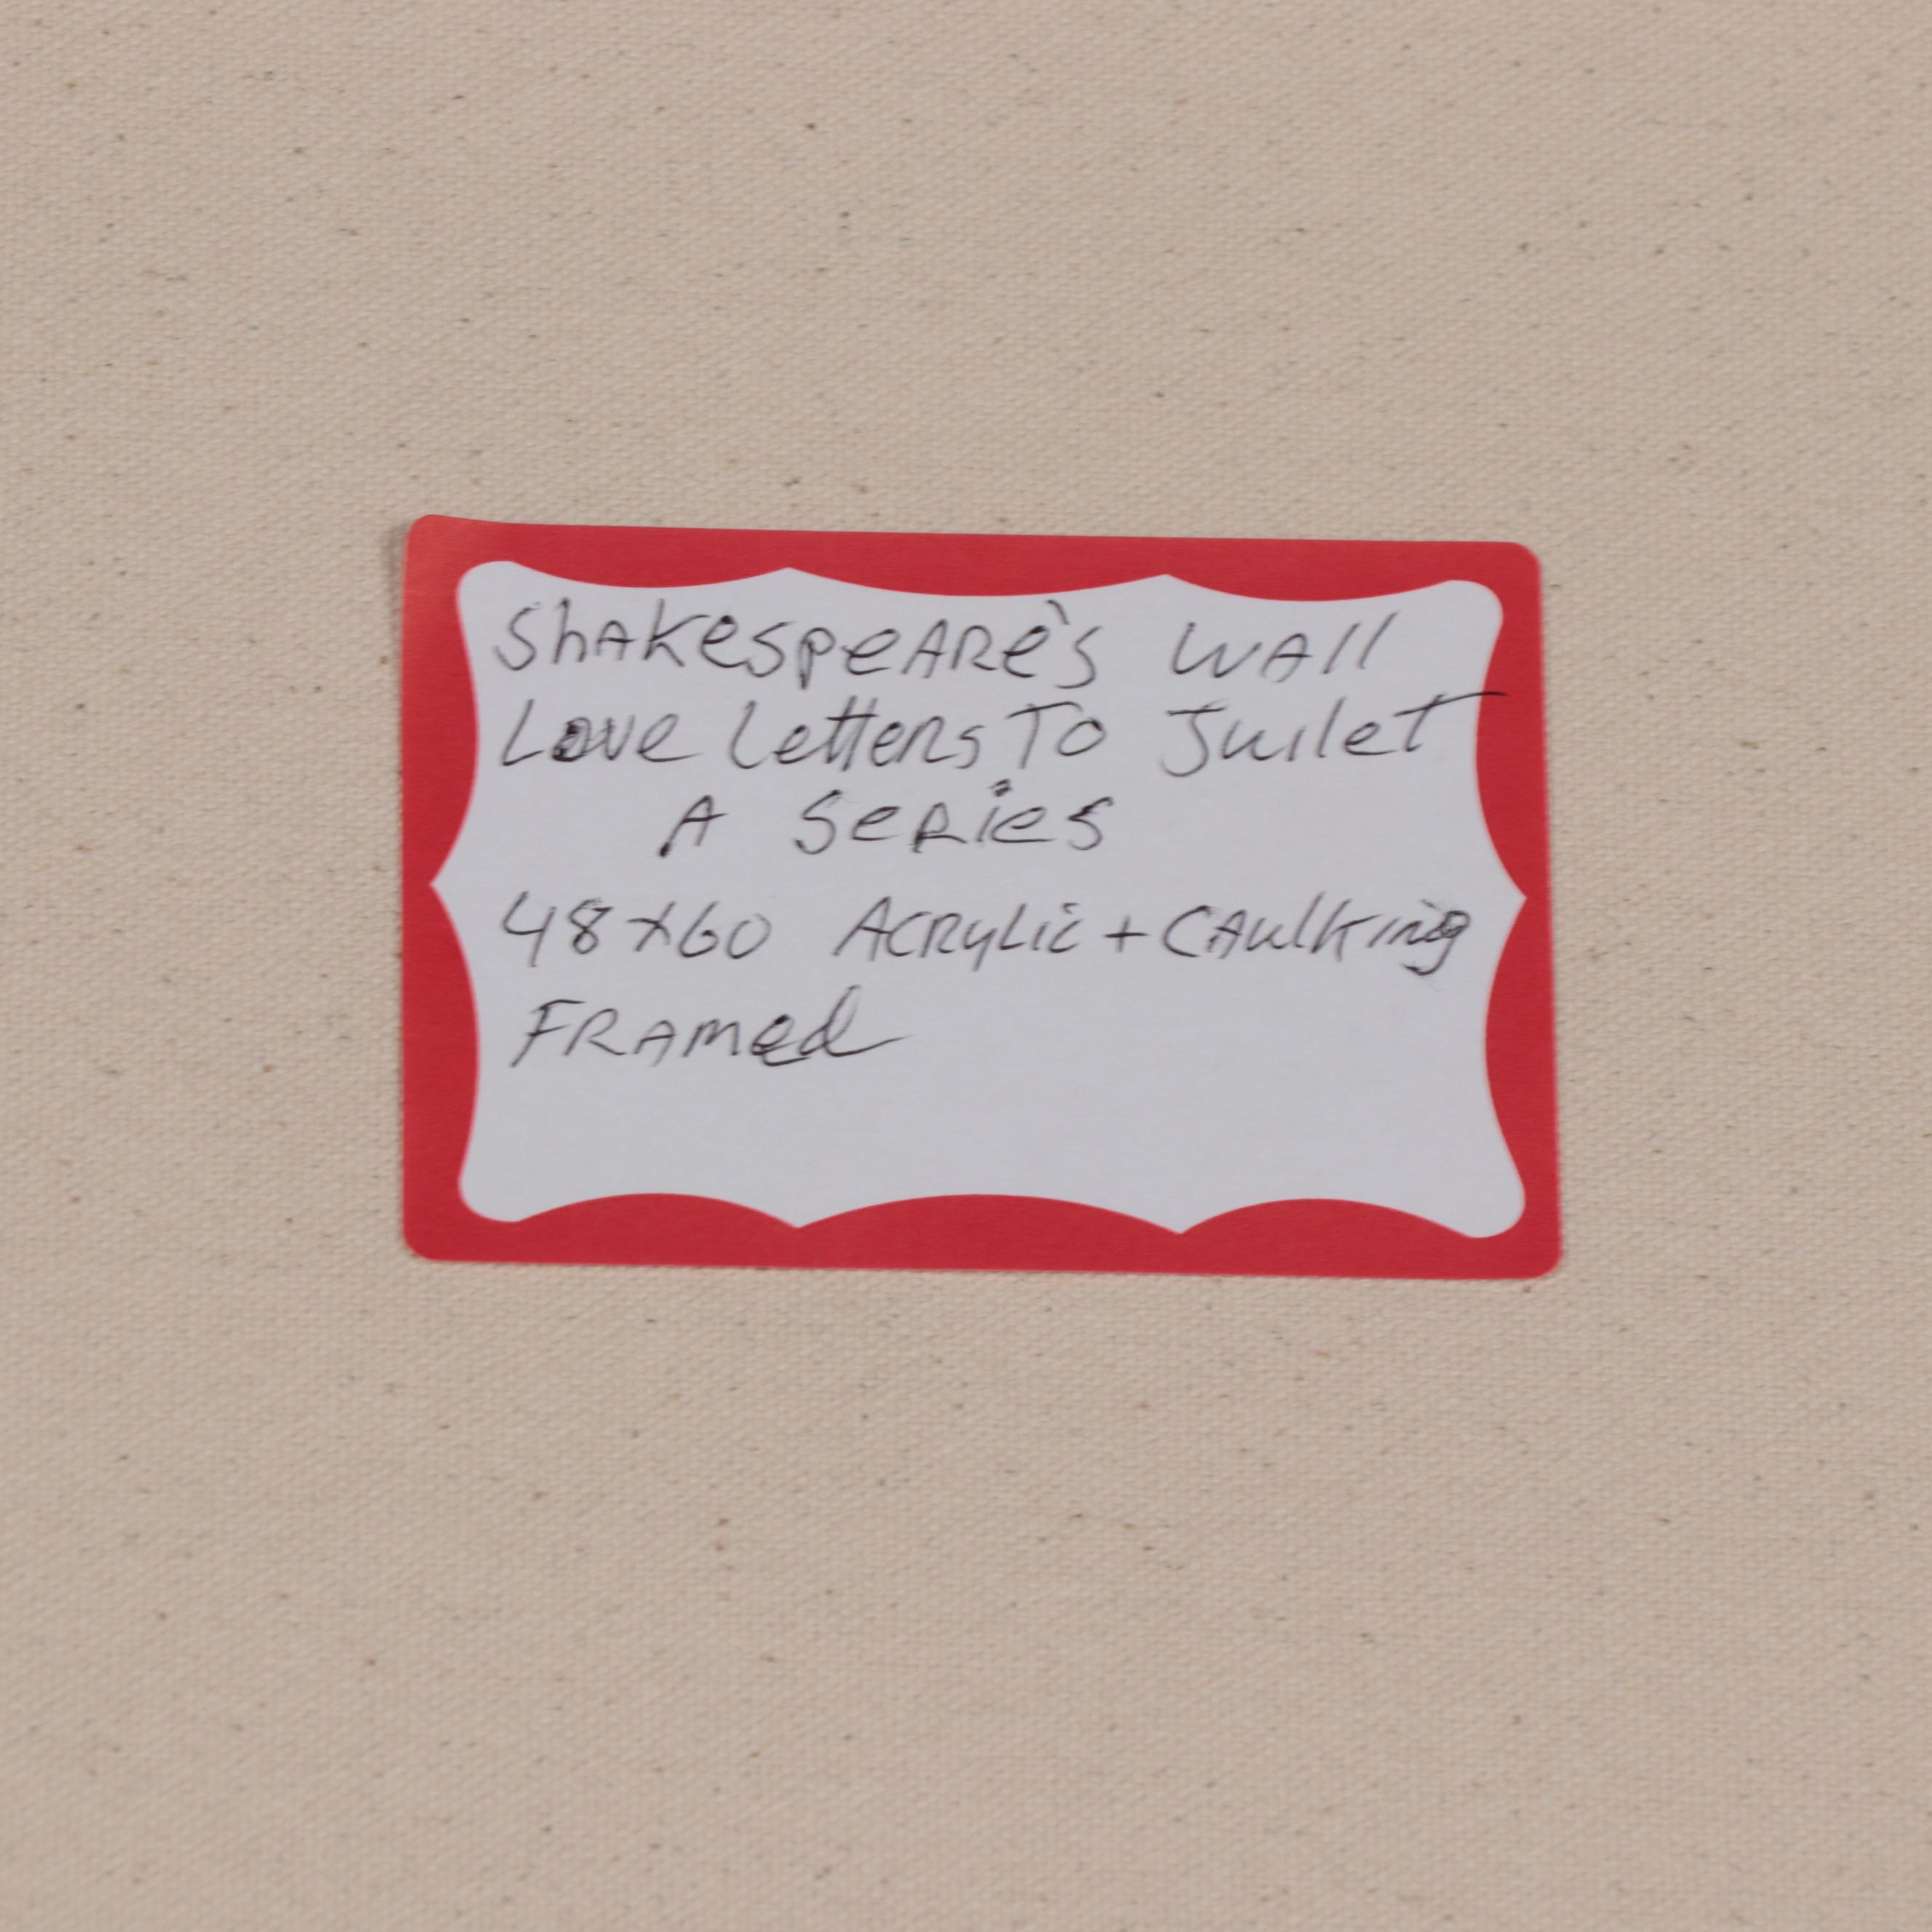 Shakespeare's Wall
Love Letters To Juilet
A Series
48x60 Acrylic + Caulking
Framed